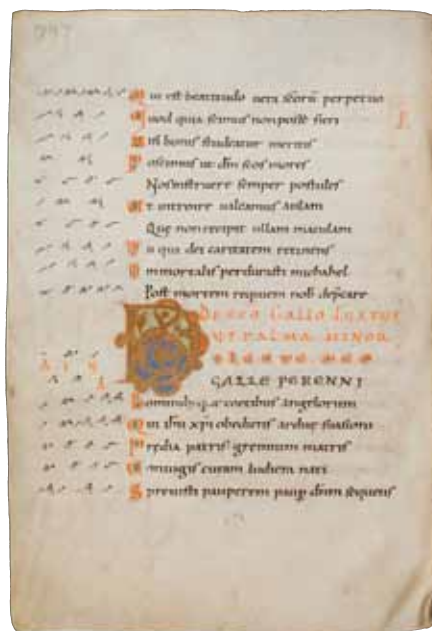 est beatitudo uera scōrū perpetuo
Quod quia scimus non posse fieri
Nisi bonis studeatur meritis
Poscimus ut dīn scōs mores
Nos instruere semper postules
Et introire ualeamus aulam
Que non recipit ullam maculam
Tu qui dei caritatem retinens
Inmortalis perdurasti michahel
Post mortem requiem nob̄ dep̄care
DE SCO GALLO IUSTUS
UT PALMA MINOR
D ILECTE DEO
GALLE PERENNI
Hominibusq; coetibus angelorum
Qui ihū xp̄i obediens arduę suasioni
Predia patris gremium matris
Coniugis curam nati
Spreuisti pauperem paup dnm sequens